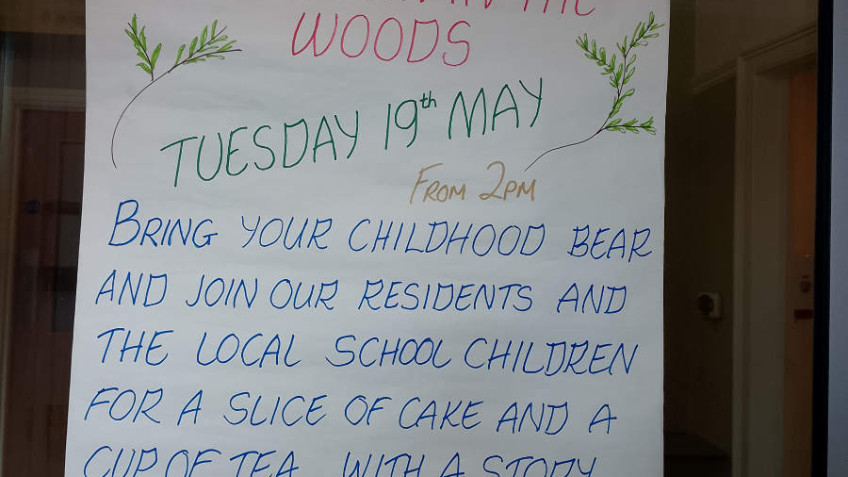 THE
WOODS
TUESDAY 19th MAY
FROM 2PM
BRING YOUR CHILDHOOD BEAR
AND JOIN OUR RESIDENTS AND
THE LOCAL SCHOOL CHILDREN
FOR A SLICE OF CAKE AND A
CUP OF TEA WITH A STORY